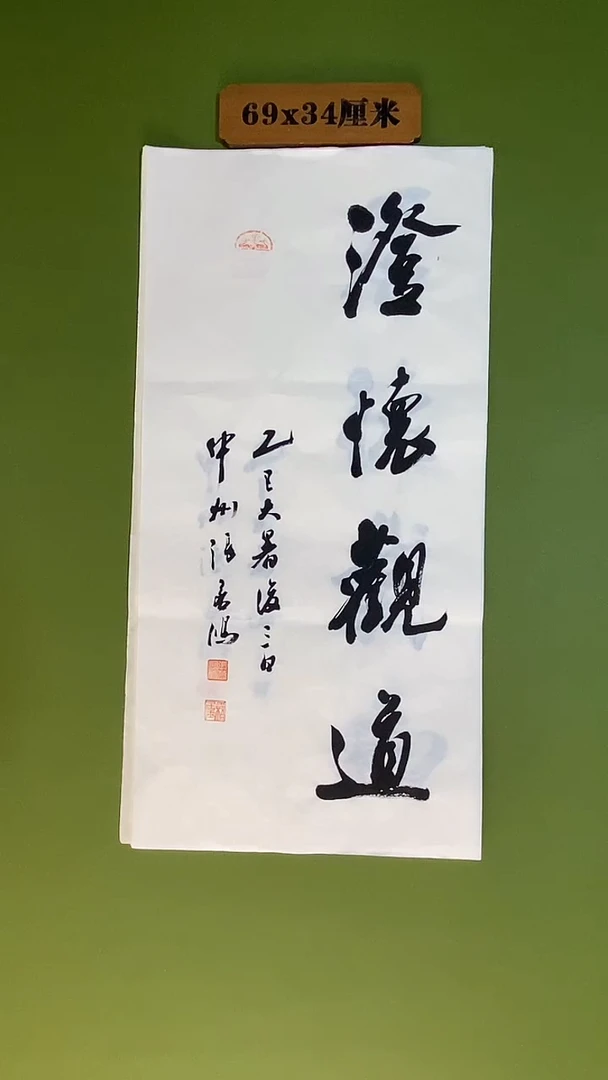 69x34厘米
澄懷觀道
乙巳大暑後三日
中州張